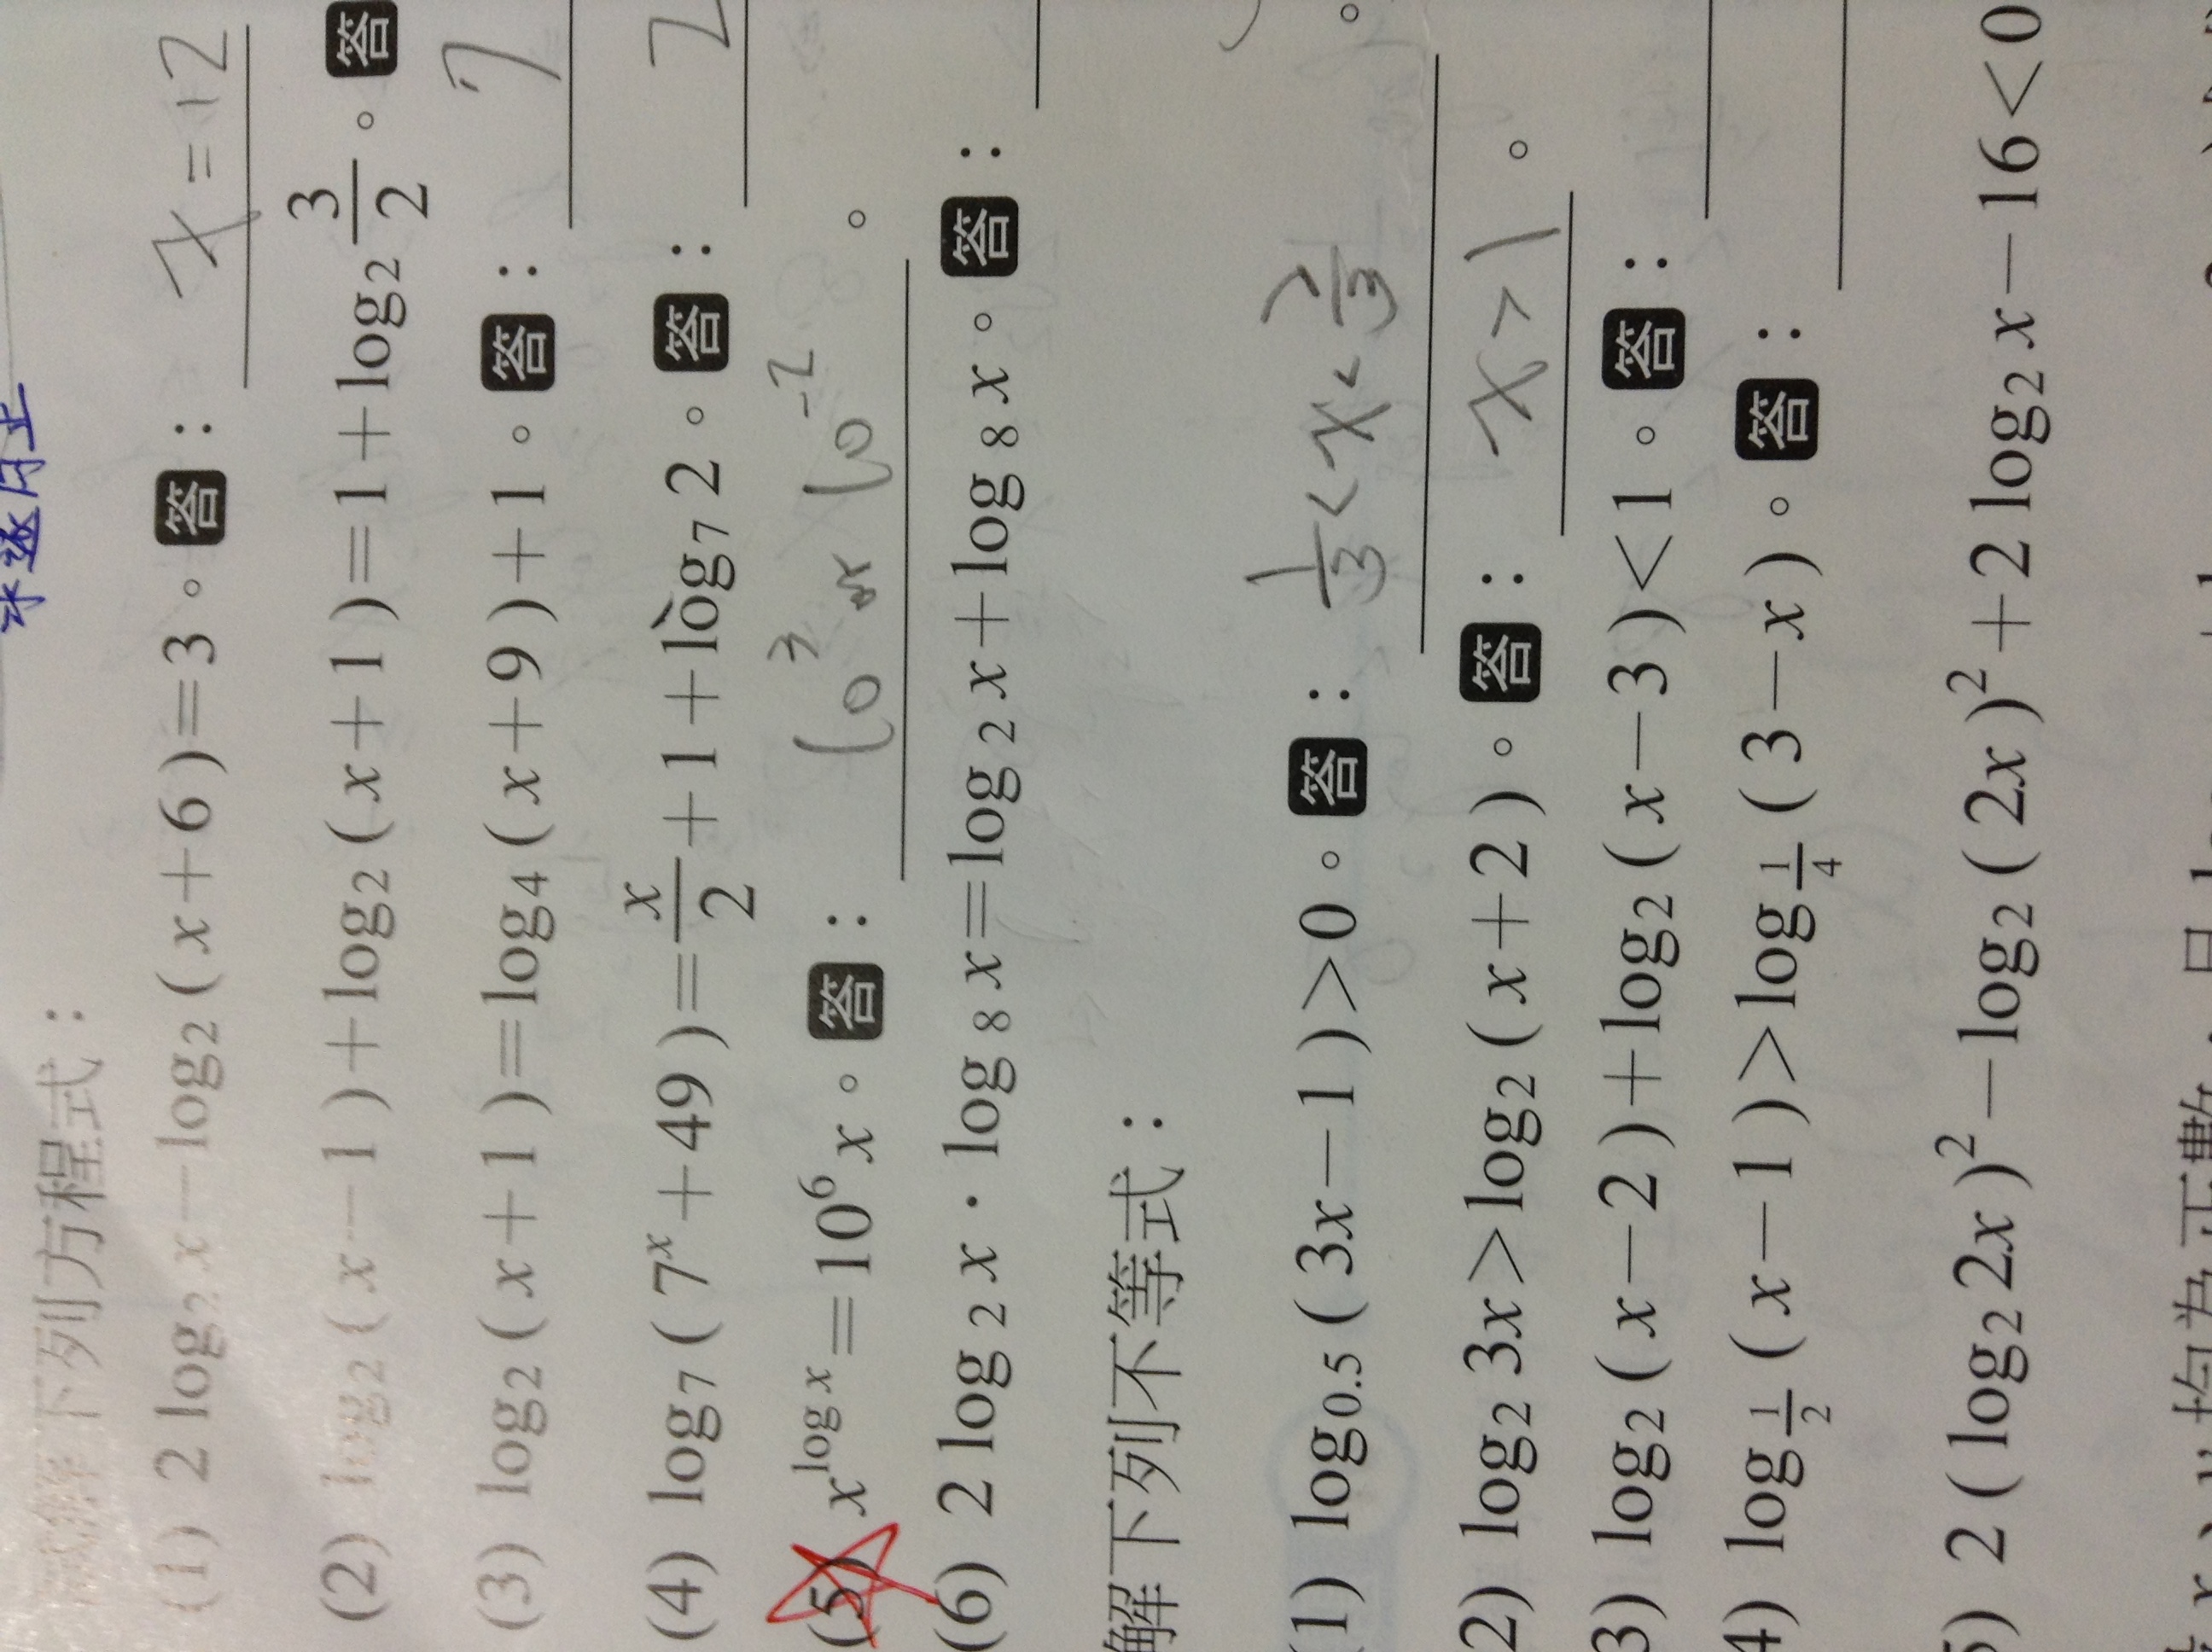 試解下列方程式：
(1) 2 log₂ x－log₂ ( x＋6 )＝3。 答： x = 12
(2) log₂ ( x－1 )＋log₂ ( x＋1 )＝1＋log₂ 3/2。 答
(3) log₂ ( x＋1 )＝log₄ ( x＋9 )＋1。 答： 7
(4) log₇ ( 7ˣ＋49 )＝x/2＋1＋log₇ 2。 答： 2
(5) x^(log x)＝10⁶ x。 答： 10³ or 10⁻² 。
(6) 2 log₂ x · log₈ x＝log₂ x＋log₈ x。 答：
解下列不等式：
(1) log₀.₅ ( 3x－1 )＞0。 答： 1/3 < x < 2/3 。
2) log₂ 3x＞log₂ ( x＋2 )。 答： x > 1 。
3) log₂ ( x－2 )＋log₂ ( x－3 )＜1。 答：
4) log_(1/2) ( x－1 )＞log_(1/4) ( 3－x )。 答：
5) 2 ( log₂ 2x )²－log₂ ( 2x )²＋2 log₂ x－16＜0
均為正數，且